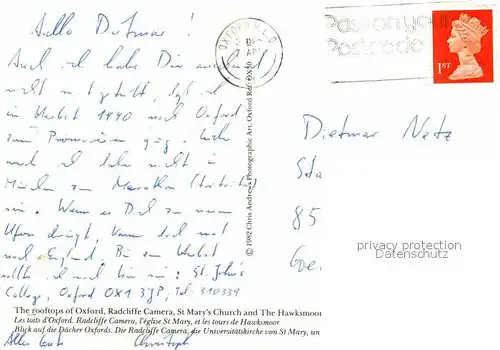 Hallo Dietmar!
Auch ich habe Dir anscheinend
nicht mitgeteilt, daß ich
im Herbst 1990 nach Oxford
zum Promovieren ging. Leider
auch ich nicht in
München zum Marathon
sein. Wenn es Dich zu neuen
Ufern drängt, komm doch mal
nach England. Bis zum Herbst
sollte ich noch hier sein: St. John's
College, Oxford OX1 3JP, Tel. 310339
Alles Gute Christoph
The rooftops of Oxford, Radcliffe Camera, St Mary's Church and The Hawksmoor
Les toits d'Oxford. Radcliffe Camera, l'église St Mary, et les tours de Hawksmoor
Blick auf die Dächer Oxfords. Die Radcliffe Camera, die Universitätskirche von St Mary, un
© 1982 Chris Andrews Photographic Art, Oxford Ref: OX50
OXFORD
AP
Pass on your
Postcode
1ST
Dietmar Netz
85
privacy protection
Datenschutz